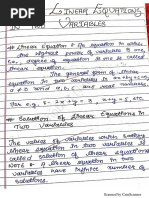 Linear Equations
in two Variables
# Linear Equation: An equation in which
the highest power of variable is one,
i.e., degree of equation is one is called
linear equation.
The general form of linear
equation in two variables is
For e.g. 2x +
# Solution of Linear Equations in
Two Variables
The values of variables which satisfy
linear equation in two variables is
called solution of linear equation.
Note: A linear equation in two
variables have infinite number of
solutions.
Scanned by CamScanner